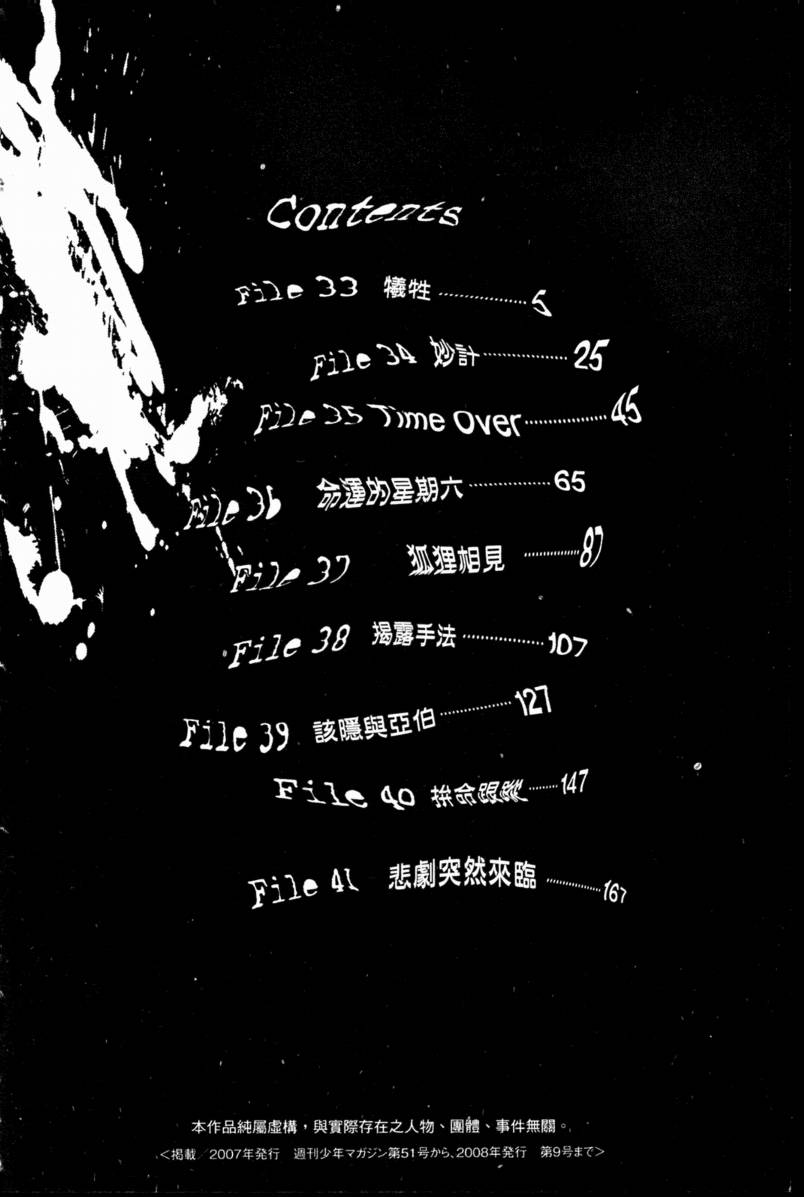 Contents
File 33 犧牲 ⋯⋯⋯⋯⋯ 5
File 34 妙計 ⋯⋯⋯⋯⋯ 25
File 35 Time Over ⋯⋯⋯⋯⋯ 45
File 36 命運的星期六 ⋯⋯⋯⋯⋯ 65
File 37 狐狸相見 ⋯⋯⋯⋯ 87
File 38 揭露手法 ⋯⋯⋯⋯⋯ 107
File 39 該隱與亞伯 ⋯⋯⋯⋯ 127
File 40 拚命跟蹤 ⋯⋯ 147
File 41 悲劇突然來臨 ⋯⋯⋯⋯ 167
本作品純屬虛構，與實際存在之人物、團體、事件無關。
＜掲載／2007年発行　週刊少年マガジン第51号から、2008年発行　第9号まで＞